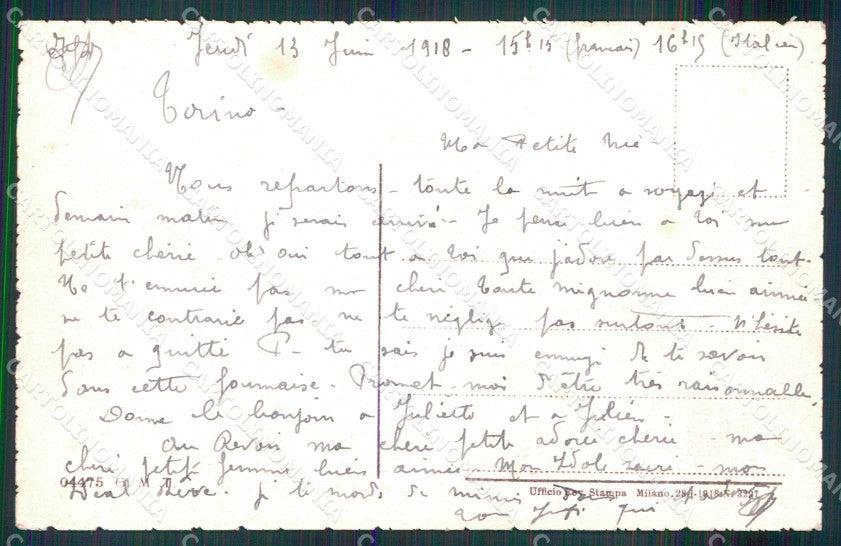 Jeudi 13 Juin 1918 - 15h15 (francais) 16h15 (Italien)
Torino -
Ma Petite
Nous repartons - toute la nuit a voyagé et
demain matin je serais arrivé - Je pense bien a toi ma
petite chérie - oh oui tout a toi que j'adore par dessus tout.
Ne t'ennuie pas ma cheri toute mignonne bien aimée
ne te contrarie pas ne te néglige pas surtout - N'hésite
pas a quitté P - tu sais je suis ennuyé de te savoir
dans cette fournaise - Promet-moi d'être très raisonnable.
Donne le bonjour a Juliette et a Julien.
Au Revoir ma cheri petite adorée cherie - ma
cheri petit femme bien aimée - Mon Idole - mon
Ideal Rêve - je te mords de mimis
ton qui
04475
Ufficio Rev. Stampa Milano
CARTOLINOMANIA